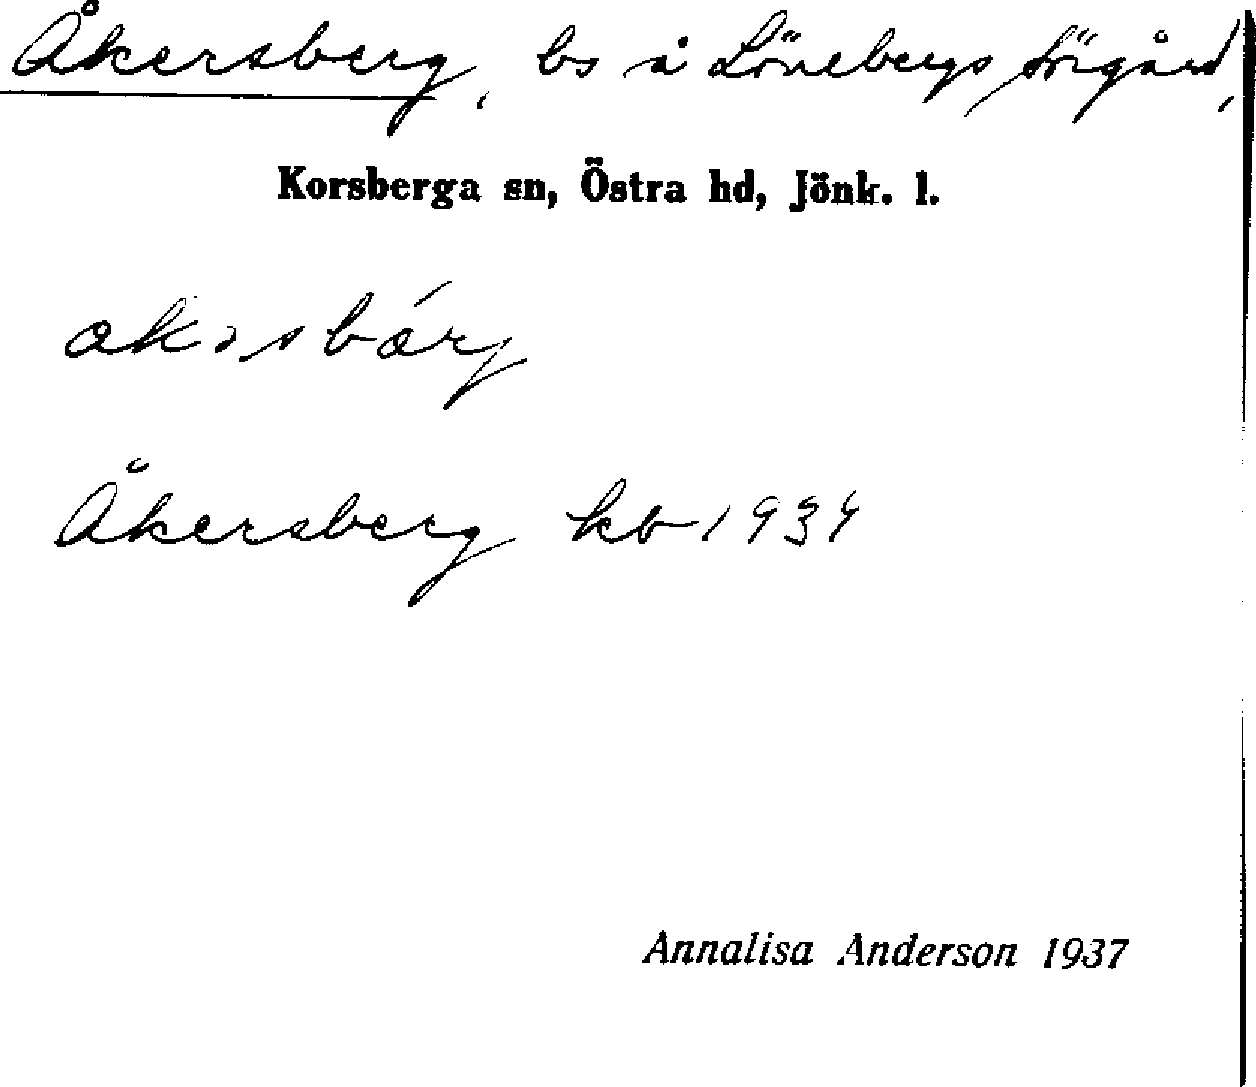 Åkersberg, bs å Lönebergs Sörgård,
Korsberga sn, Östra hd, Jönk. l.
akəsbárg
Åkersberg kb 1934
Annalisa Anderson 1937